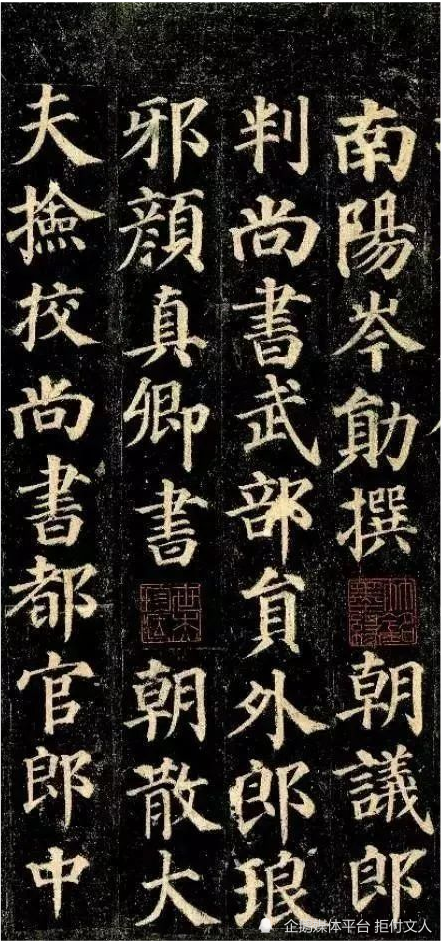 南陽岑勛撰朝議郎
判尚書武部貟外郎琅
邪顔真卿書朝散大
夫撿挍尚書都官郎中
企鹅媒体平台 拒付文人